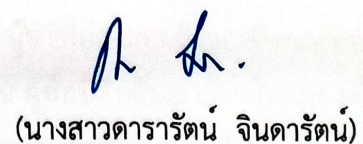 (นางสาวดารารัตน์ จินดารัตน์)